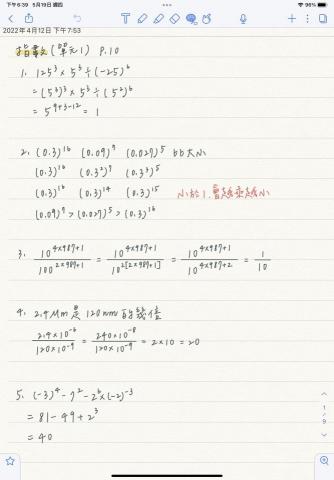 下午6:39 5月19日 週四
96%
2022年4月12日 下午7:53
指數(單元1) P.10
1. 125³ × 5³ ÷ (-25)⁶
= (5³)³ × 5³ ÷ (5²)⁶
= 5⁹⁺³⁻¹² = 1
2. (0.3)¹⁶ (0.09)⁷ (0.027)⁵ 的大小
(0.3)¹⁶ (0.3²)⁷ (0.3³)⁵
(0.3)¹⁶ (0.3)¹⁴ (0.3)¹⁵ 小於1,會越乘越小
(0.09)⁷ > (0.027)⁵ > (0.3)¹⁶
3. 10⁴ˣ⁹⁸⁷⁺¹ / 100²ˣ⁹⁸⁷⁺¹ = 10⁴ˣ⁹⁸⁷⁺¹ / 10²[²ˣ⁹⁸⁷⁺¹] = 10⁴ˣ⁹⁸⁷⁺¹ / 10⁴ˣ⁹⁸⁷⁺² = 1/10
4. 2.4 μm 是 120nm 的幾倍
2.4×10⁻⁶ / 120×10⁻⁹ = 240×10⁻⁸ / 120×10⁻⁹ = 2×10 = 20
5. (-3)⁴ - 7² - 2⁶ × (-2)⁻³
= 81 - 49 + 2³
= 40
1
/
9